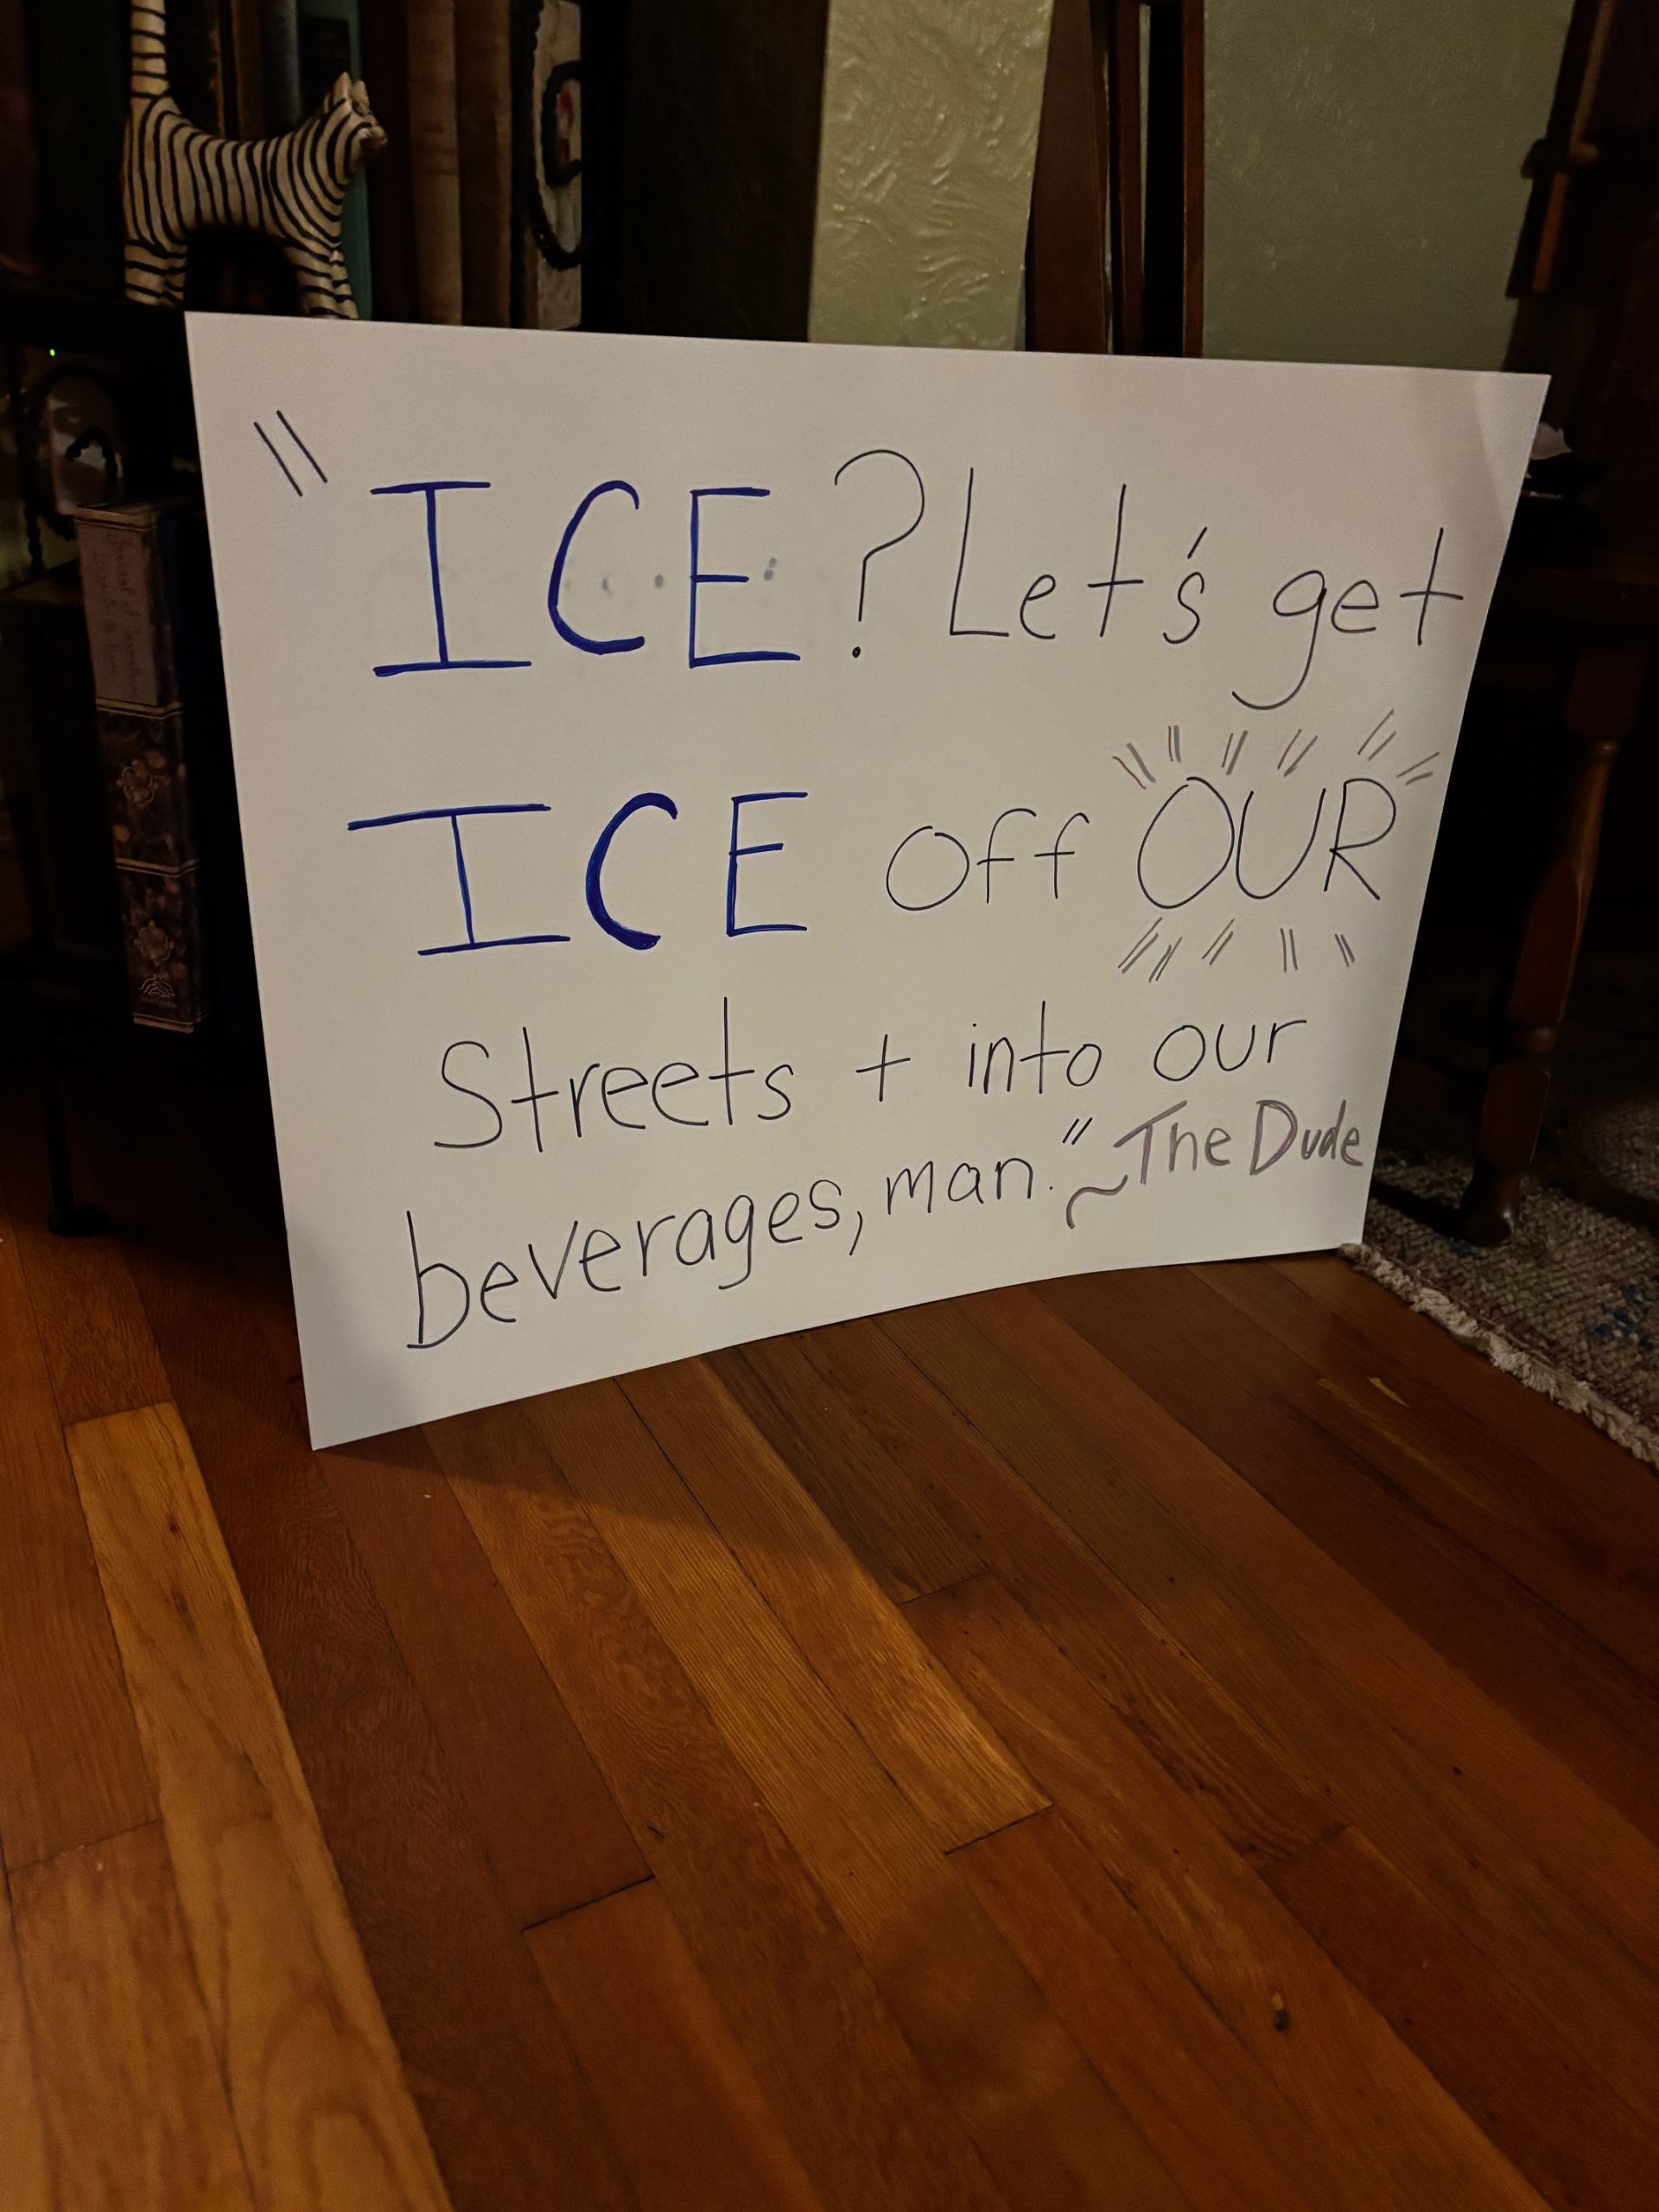 "ICE? Let's get
ICE off OUR
Streets + into our
beverages, man." ~The Dude